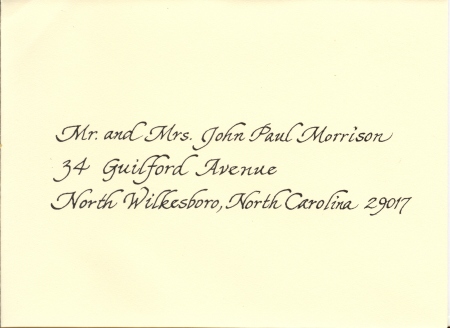 Mr. and Mrs. John Paul Morrison
34 Guilford Avenue
North Wilkesboro, North Carolina 29017